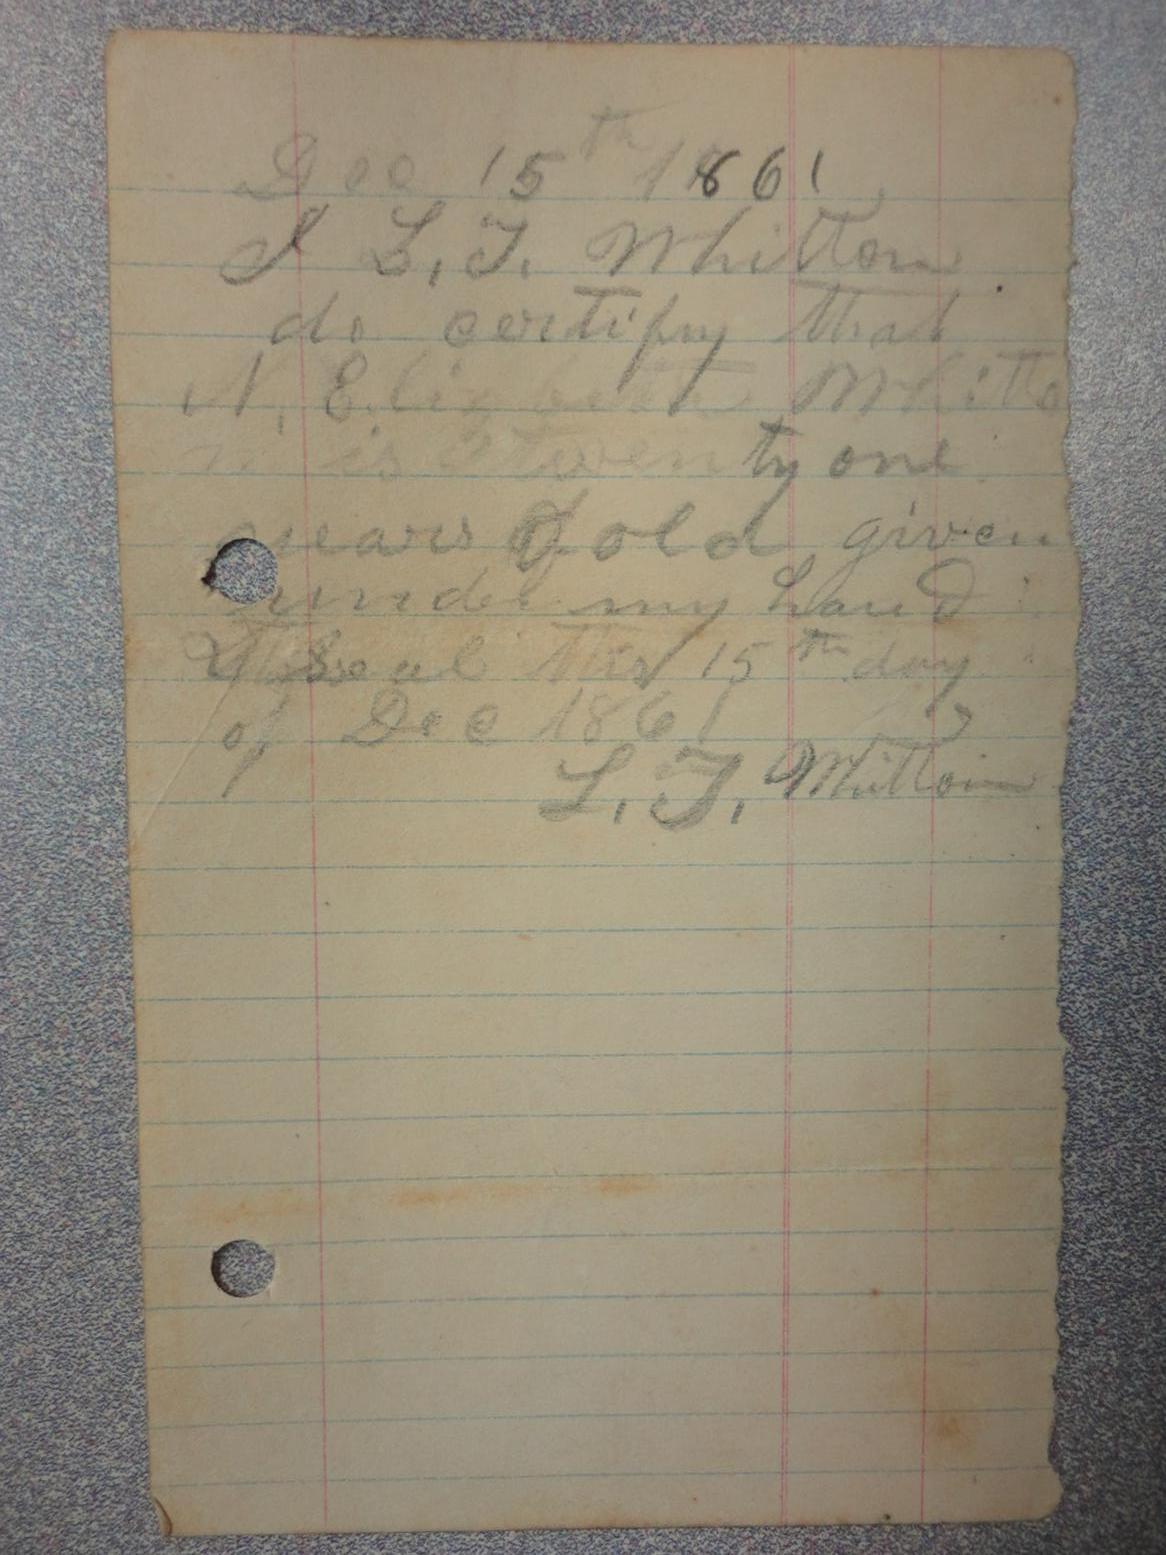 Dec 15th 1861
I L. T. Whitton
do certify that
N. Elizabeth Whitto
n is twenty one
years of old, given
under my hand
& Seal this 15th day
of Dec 1861
L. T. Whitton